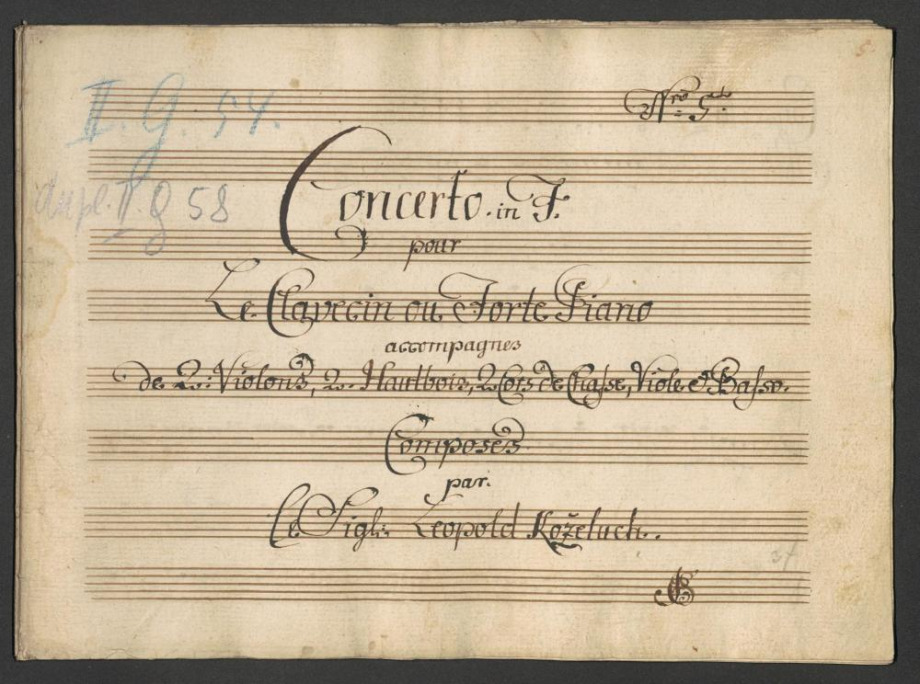 5
Nro 5to
II. G. 54.
Concerto. in F.
dupl. II. G 58
pour
Le Clavecin ou Forte Piano
accompagnes
de 2: Violons, 2. Hautbois, 2 Cors de Chasse, Viole & Basso.
Composes
par.
Le Sigl: Leopold Koželuch.
37